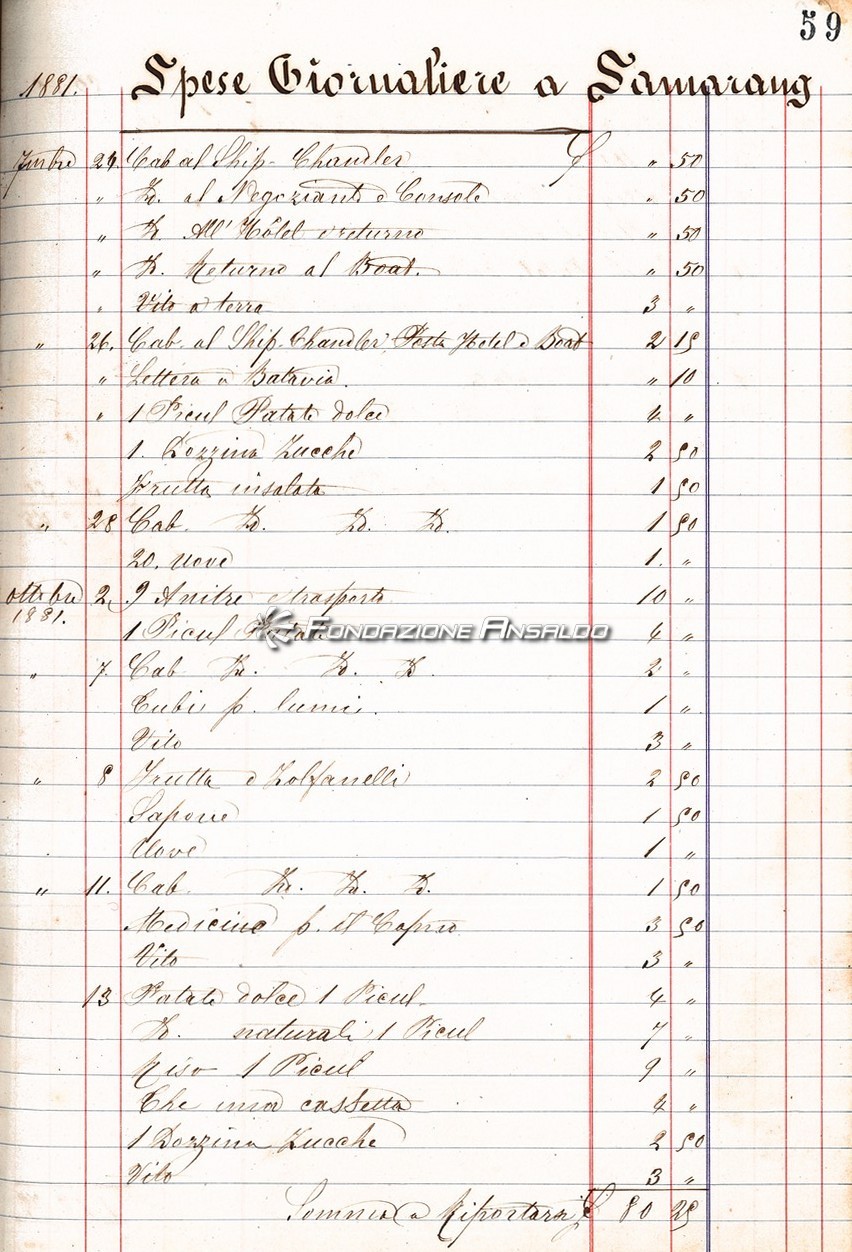 59
1881. Spese Giornaliere a Samarang
7mbre 24. Cab al Ship-Chandler £ " 50
" Id. al Negoziante e Console " 50
" Id. All' Hôtel e returno " 50
" Id. Returno al Boat. " 50
" Vito a terra 3 "
" 26. Cab al Ship-Chandler, Posta Hotel e Boat 2 15
" Lettera a Batavia. " 10
" 1 Picul Patate dolce 4 "
1. Dozzina Zucche 2 50
Frutta insalata 1 50
" 28 Cab Id. Id. Id. 1 50
20. Uove 1. "
ottobre 1881. 2. 9 Anitre e trasporto 10 "
1 Picul Patate 4 "
FONDAZIONE ANSALDO
" 7. Cab Id. Id. Id. 2 "
Tubi p. lumi. 1 "
Vito 3 "
" 8 Frutta e Zolfanelli 2 50
Sapone 1 50
Uove 1 "
" 11. Cab Id. Id. Id. 1 50
Medicine p. il 3 50
Vito 3 "
13 Patate dolce 1 Picul 4 "
Id. naturali 1 Picul 7 "
Riso 1 Picul 9 "
The una cassetta 4 "
1 Dozzina Zucche 2 50
Vito 3 "
Somma a Riportarsi £ 80 25